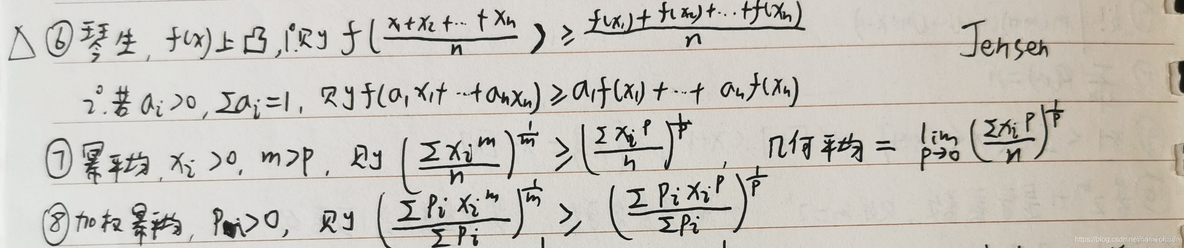 △ ⑥ 琴生, f(x)上凸, 1°则 f((x₁+x₂+…+xₙ)/n) ≥ (f(x₁)+f(x₂)+…+f(xₙ))/n Jensen
2°.若 aᵢ>0, Σaᵢ=1, 则 f(a₁x₁+…+aₙxₙ) ≥ a₁f(x₁)+…+ aₙf(xₙ)
⑦ 幂平均, xᵢ>0, m>p, 则 (Σxᵢᵐ/n)^(1/m) ≥ (Σxᵢᵖ/n)^(1/p), 几何平均 = lim p→0 (Σxᵢᵖ/n)^(1/p)
⑧ 加权幂平均, pᵢ>0, 则 (Σpᵢxᵢᵐ/Σpᵢ)^(1/m) ≥ (Σpᵢxᵢᵖ/Σpᵢ)^(1/p)